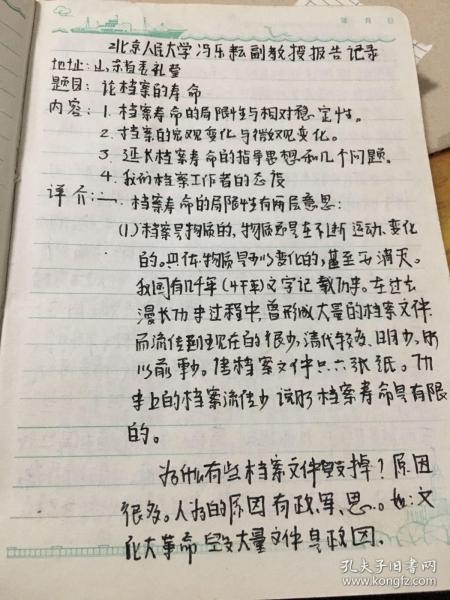 年 月 日
北京人民大学冯乐耘副教授报告记录
地址:山东省委礼堂
题目:论档案的寿命
内容:1.档案寿命的局限性与相对稳定性。
2.档案的宏观变化与微观变化。
3.延长档案寿命的指导思想和几个问题。
4.我们档案工作者的态度
评介:一.档案寿命的局限性有两层意思:
(1)档案是物质的,物质都是在不断运动、变化
的。具体物质是可以变化的,甚至于消灭。
我国有几千年(4千年)文字记载历史。在过去
漫长历史过程中,曾形成大量的档案文件
而流传到现在的很少,清代较多、明少,明
以前更少。唐档案文件只六张纸。历
史上的档案流传少说明档案寿命是有限
的。
为什么有些档案文件毁掉?原因
很多。人为的原因有政、军、思…。如:文
化大革命毁大量文件是政因、
孔夫子旧书网
www.kongfz.com